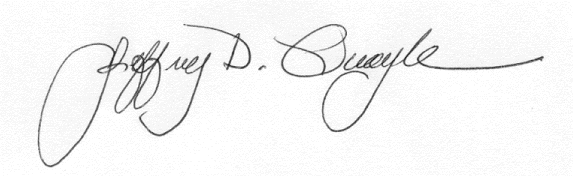 Jeffrey D. Quayle